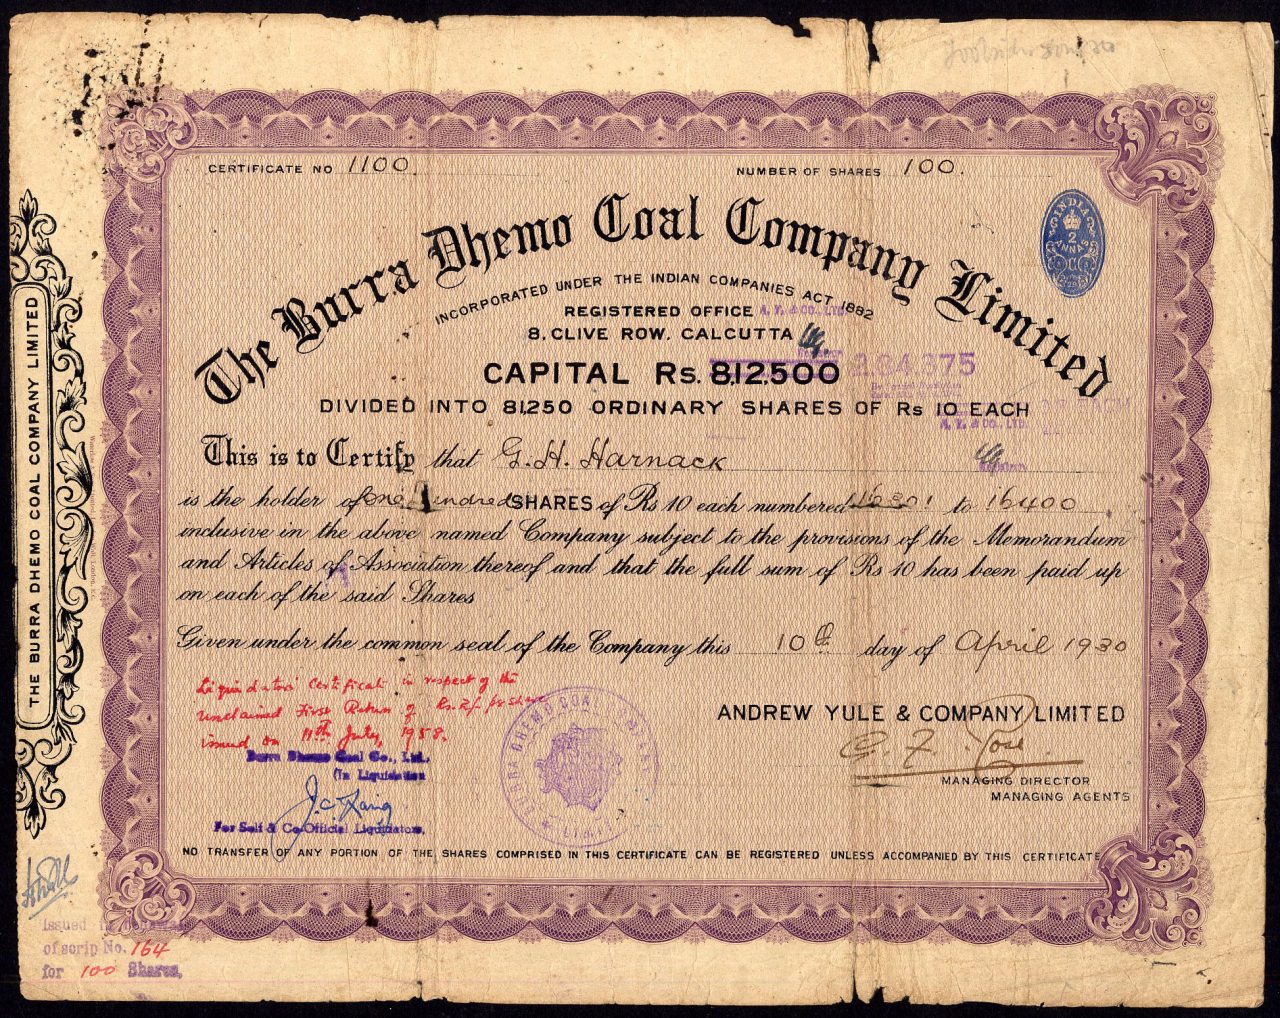 CERTIFICATE NO 1100
NUMBER OF SHARES 100.
The Burra Dhemo Coal Company Limited
INCORPORATED UNDER THE INDIAN COMPANIES ACT, 1882
INDIA
2
ANNAS
REGISTERED OFFICE
A. Y. & CO., LTD.
8, CLIVE ROW, CALCUTTA
CAPITAL Rs. 812,500
284,375
DIVIDED INTO 81250 ORDINARY SHARES OF Rs 10 EACH
A. Y. & CO., LTD.
This is to Certify that G. H. Harnack
is the holder of One Hundred SHARES of Rs 10 each numbered 16301 to 16400
inclusive in the above named Company subject to the provisions of the Memorandum
and Articles of Association thereof and that the full sum of Rs 10 has been paid up
on each of the said Shares
Given under the common seal of the Company this 10th day of April 1930
Liquidators' Certificate in respect of the
unclaimed First Return of Rs. 2/- per share
issued on 11th July, 1958.
Burra Dhemo Coal Co., Ltd.
(In Liquidation
For Self & Co-Official Liquidators,
BURRA DHEMO COAL COMPANY LIMITED
ANDREW YULE & COMPANY LIMITED
MANAGING DIRECTOR
MANAGING AGENTS
NO TRANSFER OF ANY PORTION OF THE SHARES COMPRISED IN THIS CERTIFICATE CAN BE REGISTERED UNLESS ACCOMPANIED BY THIS CERTIFICATE
THE BURRA DHEMO COAL COMPANY LIMITED
Issued in
of scrip No. 164
for 100 Shares.